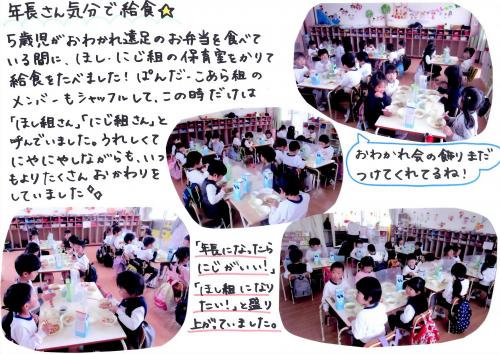 年長さん気分で給食☆
5歳児がおわかれ遠足のお弁当を食べて
いる間に、ほし・にじ組の保育室をかりて
給食をたべました!ぱんだ・こあら組の
メンバーもシャッフルして、この時だけは
「ほし組さん」「にじ組さん」と
呼んでいました。うれしくて
にやにやしながらも、いつ
もよりたくさんおかわりを
していました
おわかれ会の飾りまだ
つけてくれてるね!
「年長になったら
にじがいい!」
「ほし組になり
たい!」と盛り
上がっていました。